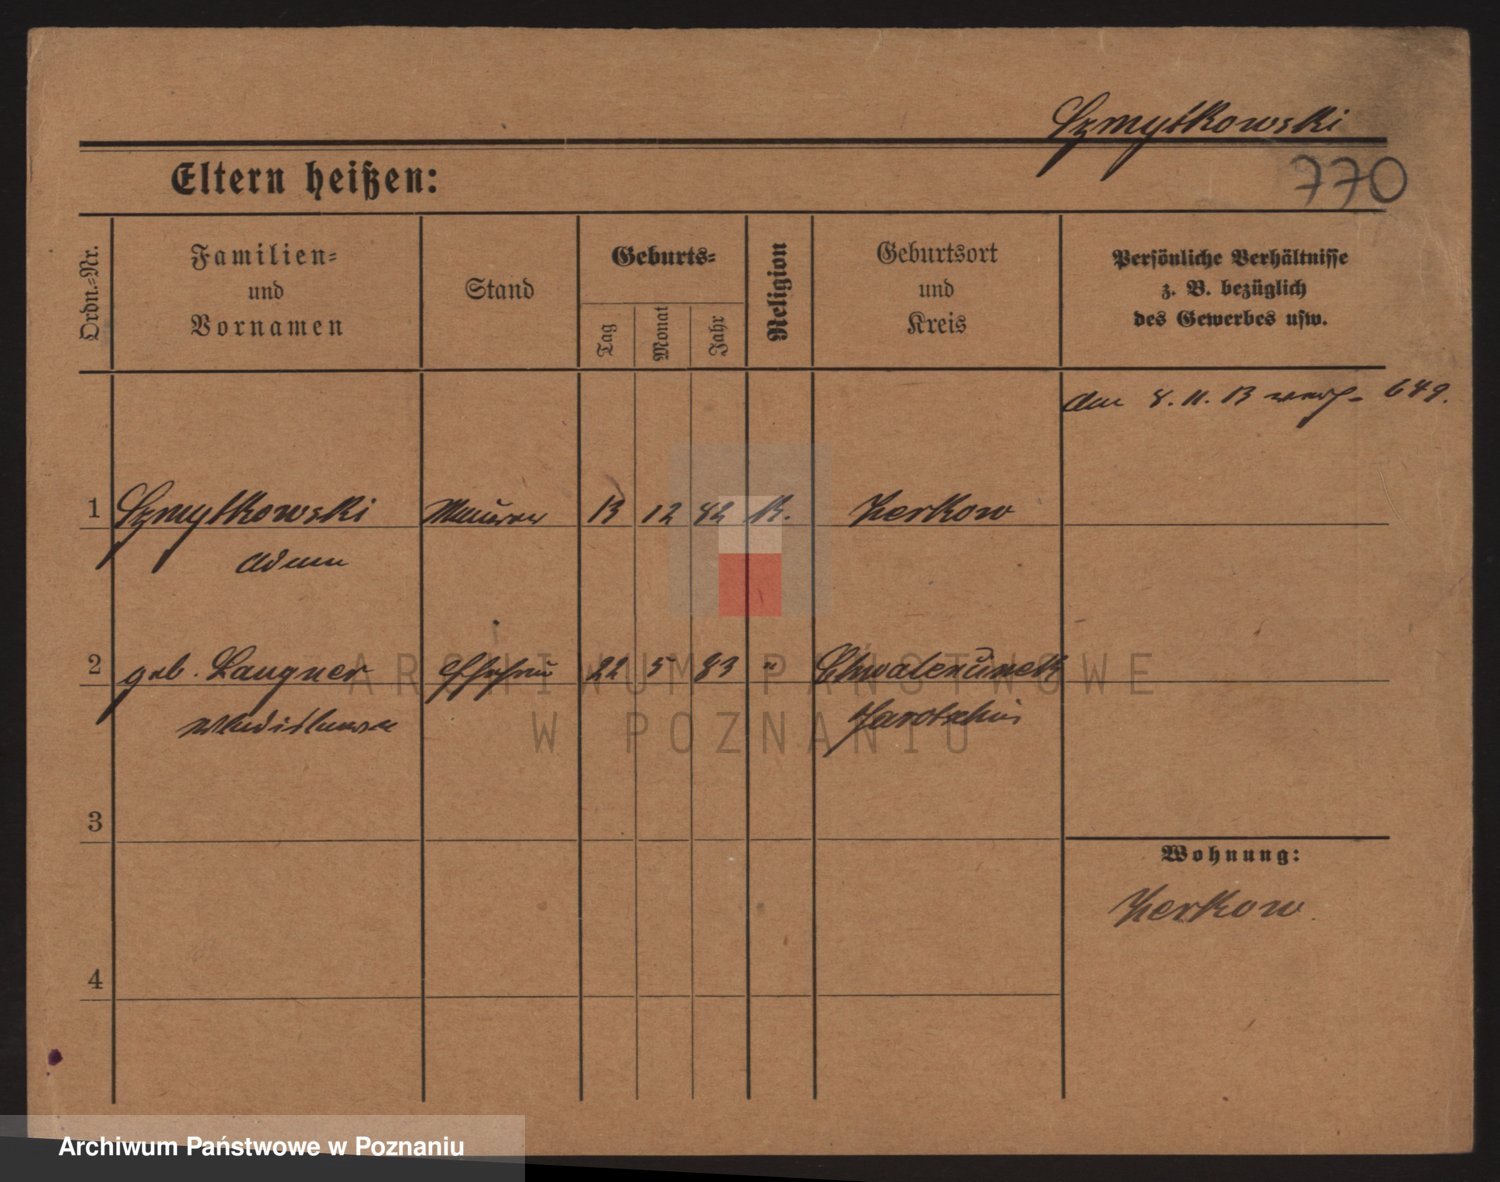 Szmytkowski
770
Eltern heißen:
Ordn.-Nr.
Familien-
und
Vornamen
Stand
Geburts-
Tag
Monat
Jahr
Religion
Geburtsort
und
Kreis
Persönliche Verhältnisse
z. B. bezüglich
des Gewerbes usw.
am 8. 11. 13 649.
1 Szmytkowski Maurer 13 12 82 K. Zerkow
Adam
2 geb. Langner Ehefrau 22 5 83 "
Wladislawa Jarotschin
3
Wohnung:
Zerkow
4
ARCHIWUM PAŃSTWOWE
W POZNANIU
Archiwum Państwowe w Poznaniu